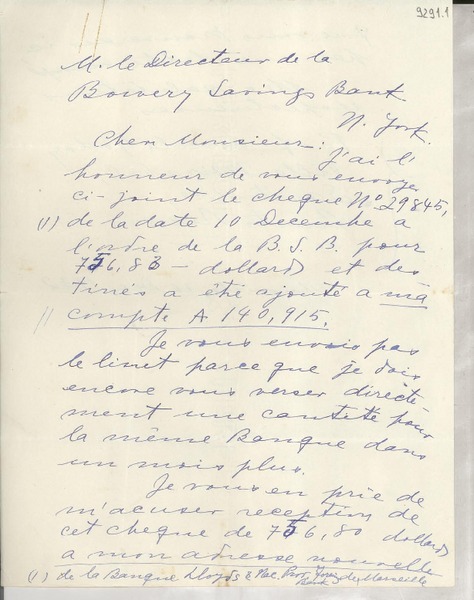 9291.1
M. le Directeur de la
Bowery Savings Bank
N. York.
Cher Monsieur: J'ai l'
honneur de vous envoye
ci-joint le cheque Nº 29845,
(1) de la date 10 Decembe a
l'ordre de la B.S.B. pour
756,83 — dollards et des
tinés a été ajouté a ma
compte A 140,915.
Je vous envois pas
le livret parce que je dois
encore vous verser directe
ment une cantité pour
la même Banque dans
un mois plus.
Je vous en prie de
m'acuser reception de
cet cheque de 756,80 dollards
a mon adresse nouvelle
(1) de la Banque Lloyds & Nac. Prov. Foreig Bank de Marseille